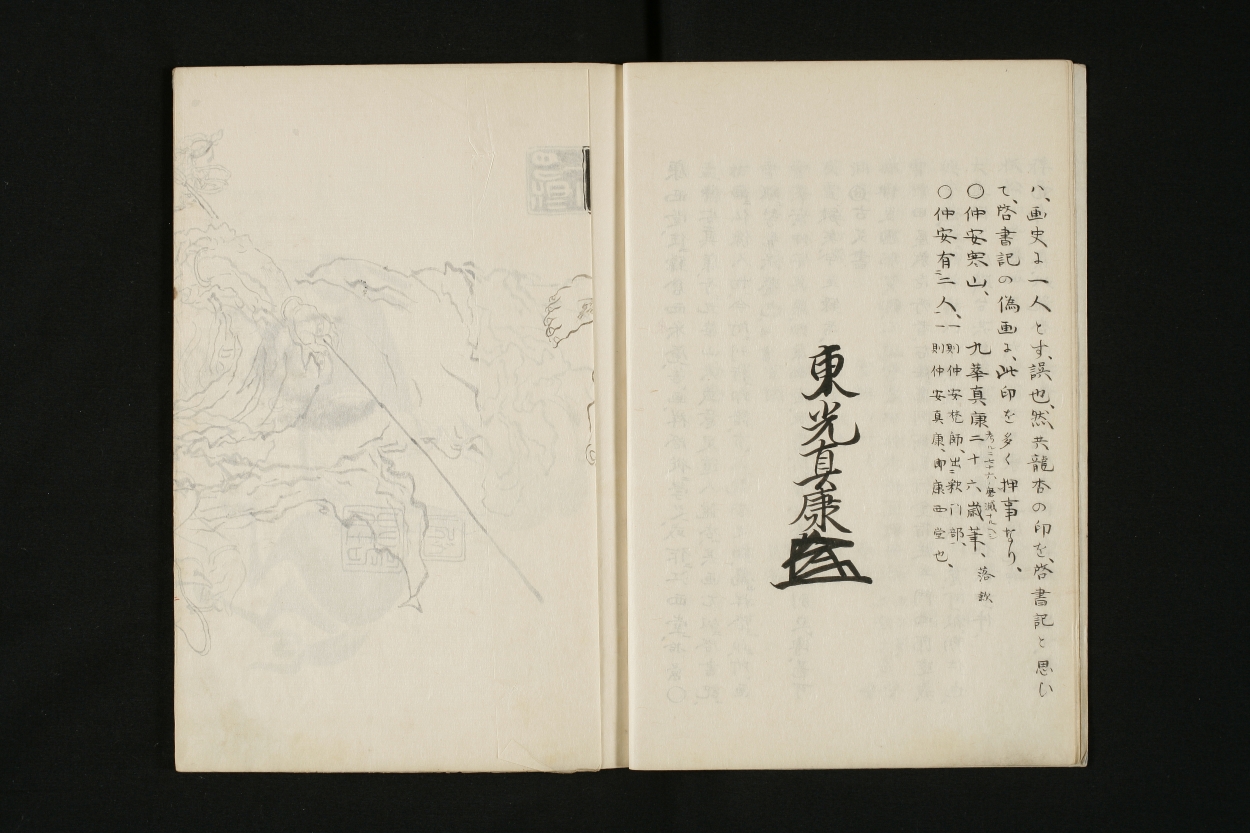 ハ、画史に一人とす、誤也、然共龍杏の印を、啓書記と思ひ
て、啓書記の偽画に、此印を多く押事なり、
〇仲安寒山、九華真康二十六歳筆、落欵
〇仲安有二人、一則仲安梵師、出釈門部、
一則仲安真康、即康西堂也、
東光真康